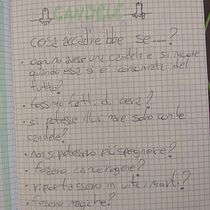 CANDELE
cosa accadrebbe se....?
• ognuno avesse una candela e si
quando essa si è consumata del
tutto?
• fossimo fatti di cera?
• si potesse illuminare solo con le
candele?
• non si potessero più spegnere?
• fossero cancerogene?
• riportassero in vita i morti?
• fossero magiche?